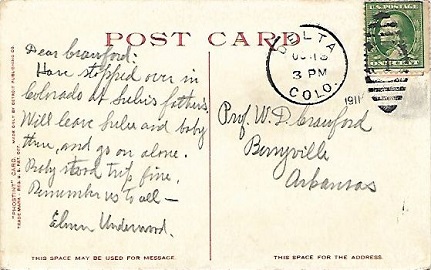 POST CARD
Dear Crawford:
Have stopped over in
Colorado at Lulu's fathers.
Will leave Lulu and baby
there, and go on alone.
Baby stood trip fine.
Remember us to all —
Elmer Underwood.
"PHOSTINT" CARD. MADE ONLY BY DETROIT PUBLISHING CO.
THIS SPACE MAY BE USED FOR MESSAGE.
DELTA
3 PM
COLO.
1911
U.S. POSTAGE
ONE CENT
Prof. W. D. Crawford
Berryville
Arkansas
THIS SPACE FOR ADDRESS ONLY.